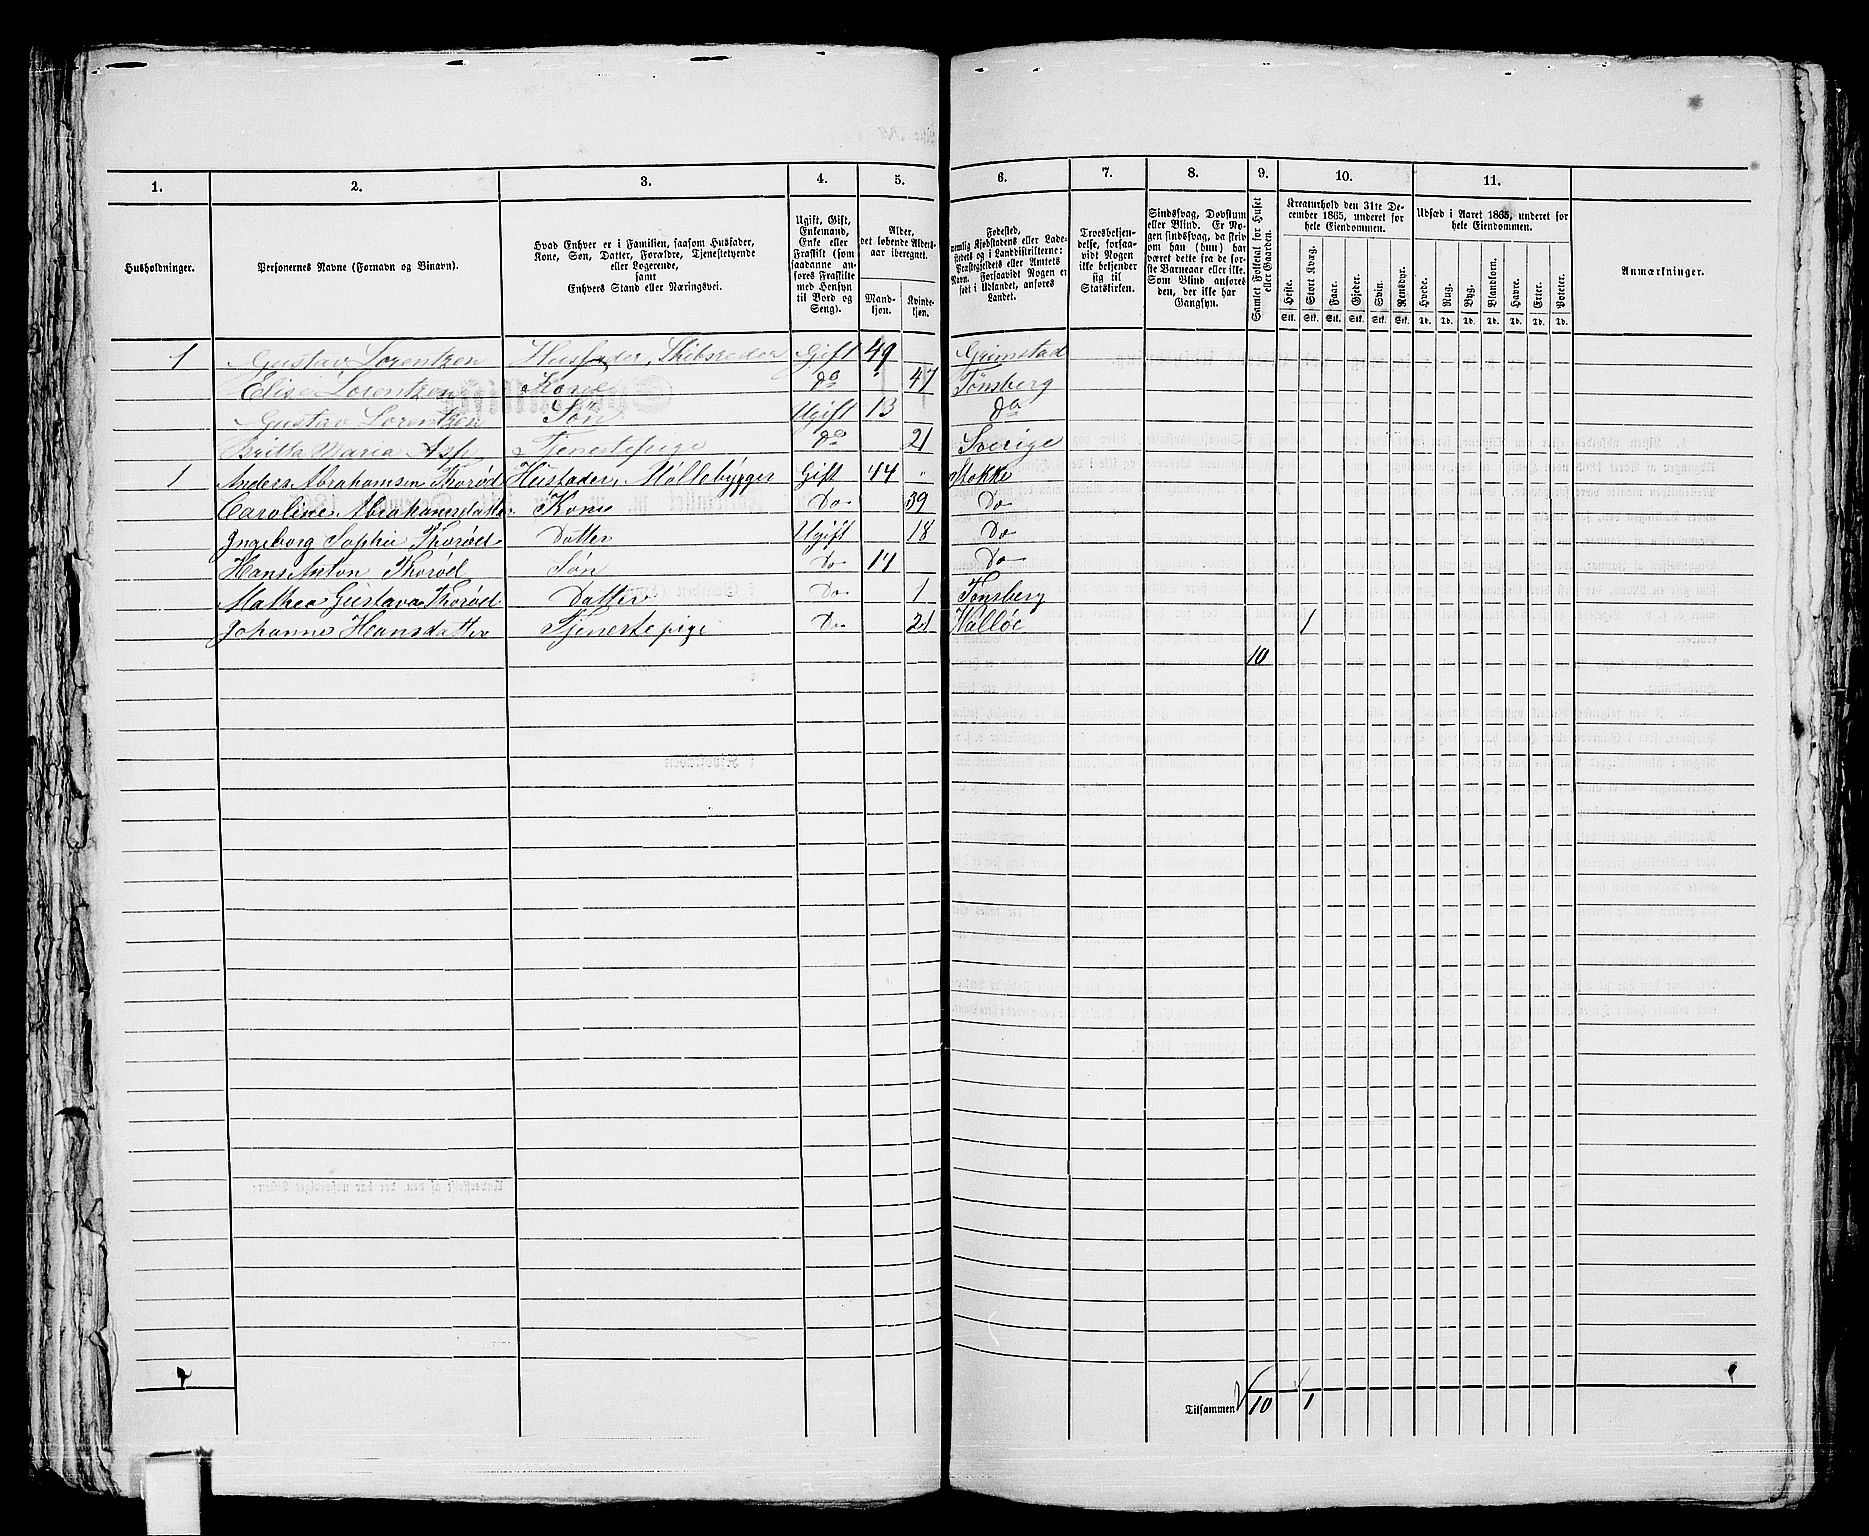 1. 2. 3. 4. 5. 6. 7. 8. 9. 10. 11.
Husholdninger.
Personernes Navne (Fornavn og Binavn).
Hvad Enhver er i Familien, saasom Husfader,
Kone, Søn, Datter, Forældre, Tjenestetyende
eller Logerende,
samt
Enhvers Stand eller Næringsvei.
Ugift, Gift,
Enkemand,
Enke eller
Fraskilt (som
saadanne an-
føres Fraskilte
med Hensyn
til Bord og
Seng).
Alder,
det løbende Alders-
aar iberegnet.
Mand-
kjøn.
Kvinde-
kjøn.
Fødested,
nemlig Kjøbstadens eller Lade-
stedets og i Landdistrikterne:
Præstegjeldets eller Amtets
Navn. Forsaavidt Nogen er
født i Udlandet, anføres
Landet.
Troesbekjen-
delse, forsaa-
vidt Nogen
ikke bekjender
sig til
Statskirken.
Sindssvag, Døvstum
eller Blind. Er No-
gen sindssvag, da skriv
om han (hun) har
været dette fra de før-
ste Barneaar eller ikke.
Som Blind anføres
den, der ikke har
Gangsyn.
Samlet Folketal for Huset
eller Gaarden.
Kreaturhold den 31te De-
cember 1865, underet for
hele Eiendommen.
Heste. Stort Kvæg. Faar. Gjeder. Svin. Rensdyr.
Stk. Stk. Stk. Stk. Stk. Stk.
Udsæd i Aaret 1865, underet for
hele Eiendommen.
Hvede. Rug. Byg. Blandkorn. Havre. Erter. Poteter.
Td. Td. Td. Td. Td. Td. Td.
Anmærkninger.
1 Gustav Lorentzen Husfader, Skibsreder Gift 49 Grimstad
Elise Lorentzen Kone do " 47 Tønsberg
Gustav Lorentzen Søn Ugift 13 do
Britta Maria Asp Tjenestepige do 21 Sverige
1 Anders Abrahamsen Thorød Husfader, Møllebygger Gift 44 " Stokke
Caroline Abrahamsdatter Kone Do 39 Do
Ingeborg Sophie Thorød Datter Ugift 18 Do
Hans Anton Thorød Søn Do 14 Do
Mathea Gustava Thorød Datter Do 1 Tønsberg
Johanne Hansdatter Tjenestepige Do 21 Walløe 1
10
Tilsammen 10 1